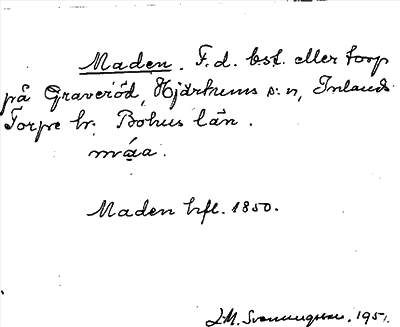 Maden. F.d. bst. eller torp
på Graveröd, Hjärtums s:n, Inlands
Torpe hr. Bohus län.
måa.
Maden hfl. 1850.
1951.